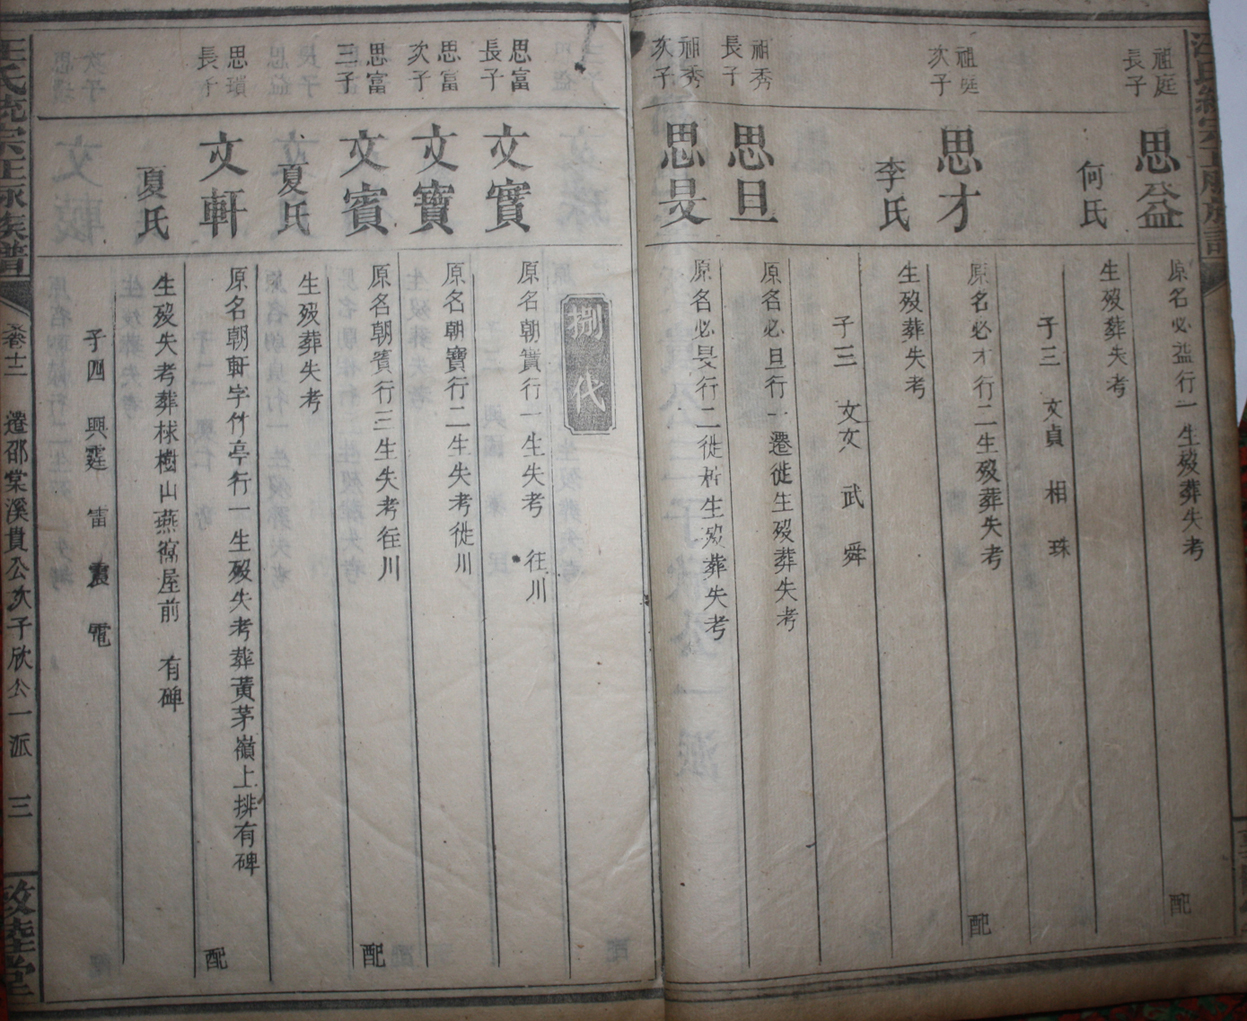 祖庭長子
思益
原名必益行一生歿葬失考
配
何氏
生歿葬失考
子三 文貞 相 珠
祖庭次子
思才
原名必才行二生歿葬失考
配
李氏
生歿葬失考
子三 文文 武 舜
祖秀長子
思旦
原名必旦行一遷徙生歿葬失考
祖秀次子
思旻
原名必旻行二徙析生歿葬失考
捌代
思富長子
文實
原名朝實行一生失考 徃川
思富次子
文寶
原名朝寶行二生失考徙川
思富三子
文賓
原名朝賓行三生失考徃川
配
夏氏
生歿葬失考
思瓚長子
文軒
原名朝軒字竹亭行一生歿失考葬黃茅嶺上排有碑
配
夏氏
生歿失考葬林樹山燕窩屋前 有碑
子四 興霆 雷 震 電
汪氏統宗正脉族譜
卷廿二
遷邵棠溪貫公次子欣公一派
三
敦睦堂